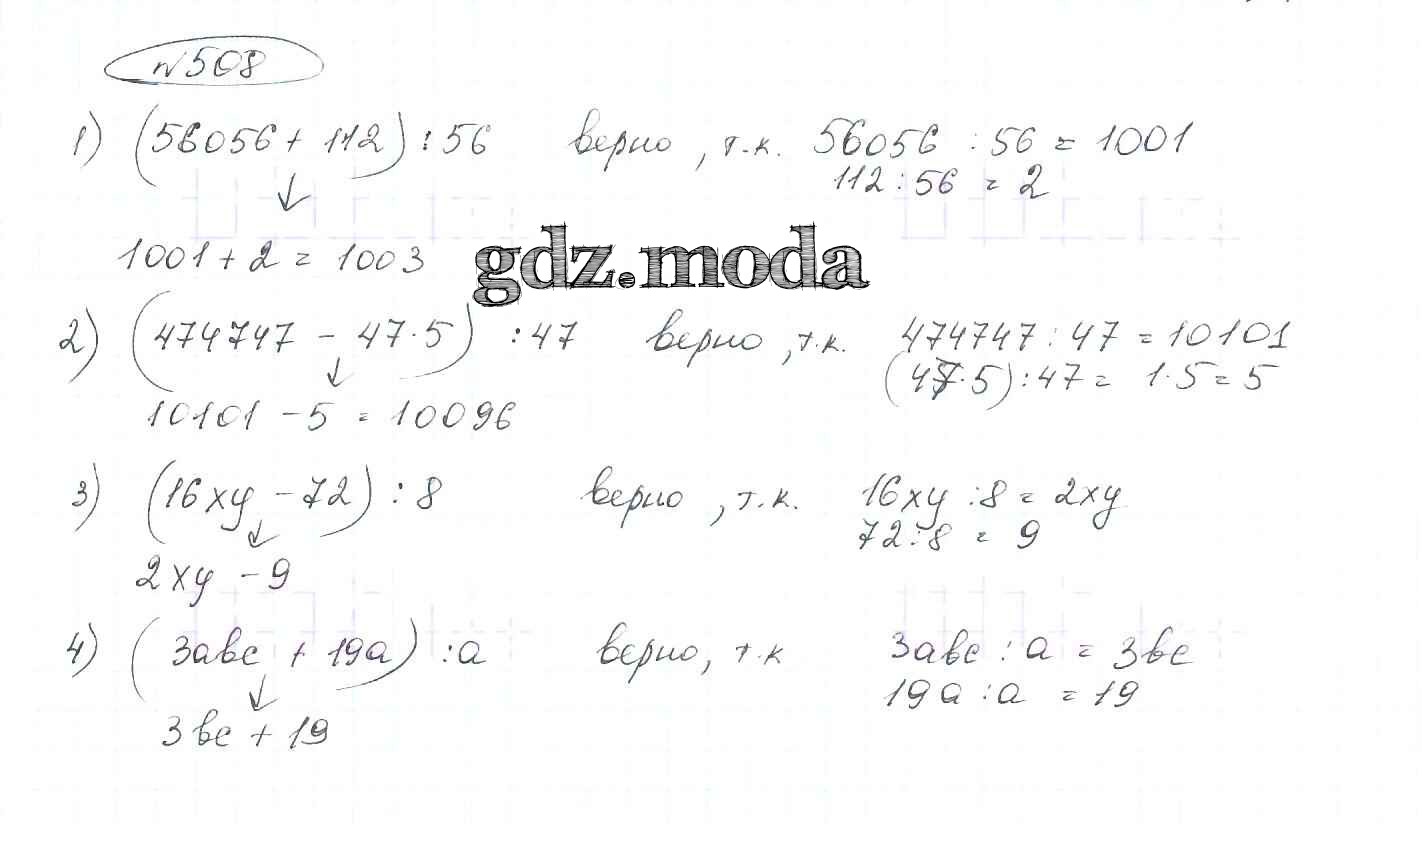 №508
1) (56056 + 112) : 56 верно, т.к. 56056 : 56 = 1001
112 : 56 = 2
1001 + 2 = 1003
gdz.moda
2) (474747 - 47·5) : 47 верно, т.к. 474747 : 47 = 10101
(47·5) : 47 = 1·5 = 5
10101 - 5 = 10096
3) (16xy - 72) : 8 верно, т.к. 16xy : 8 = 2xy
72 : 8 = 9
2xy - 9
4) (3авс + 19а) : а верно, т.к 3авс : а = 3вс
19а : а = 19
3вс + 19